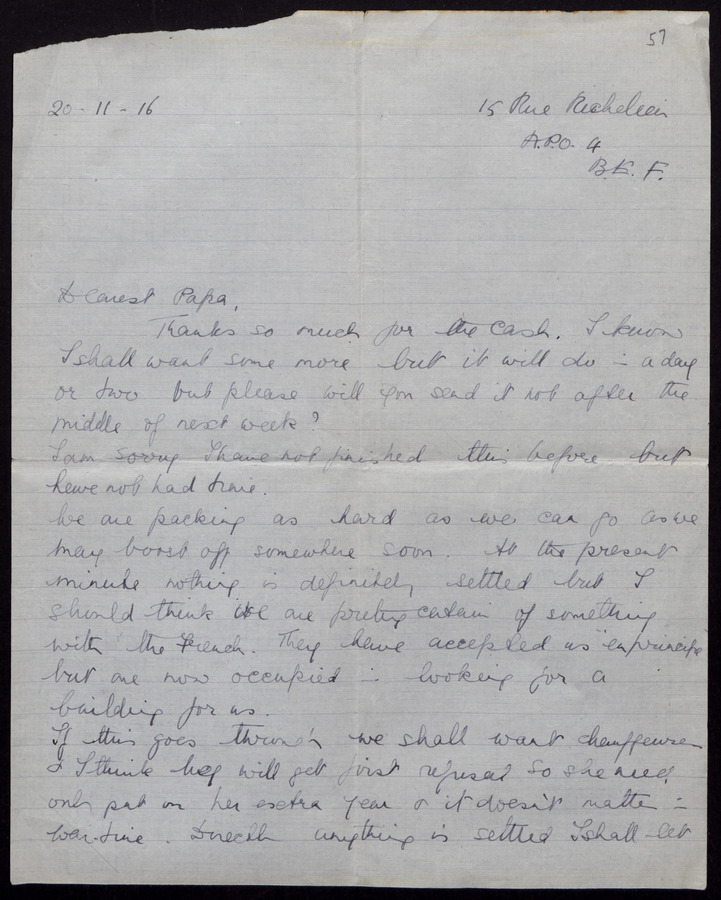 57
20-11-16
15 Rue Richelieu
A.P.O. 4
B.E.F.
Dearest Papa,
Thanks so much for the cash. I know
I shall want some more but it will do in a day
or two but please will you send it not after the
middle of next week?
I am sorry I have not finished this before but
have not had time.
We are packing as hard as we can go as we
may boost off somewhere soon. At the present
minute nothing is definitely settled but I
should think we are pretty certain of something
with the French. They have accepted us "en principe"
but are now occupied in looking for a
building for us.
If this goes through we shall want chauffeuses
& I think they will get first refusal so she need
only put on her extra year & it doesn't matter in
war-time. Directly anything is settled I shall let